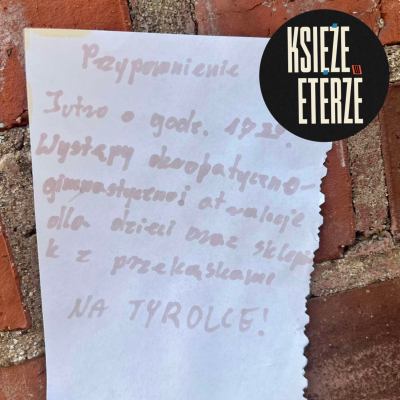 KSIĘŻE
ETERZE
Przypomnienie
Jutro o godz. 17
Występy akrobatyczno-
gimnastyczne i atrakcje
dla dzieci oraz sklepi
k z przekąskami
NA TYROLCE!